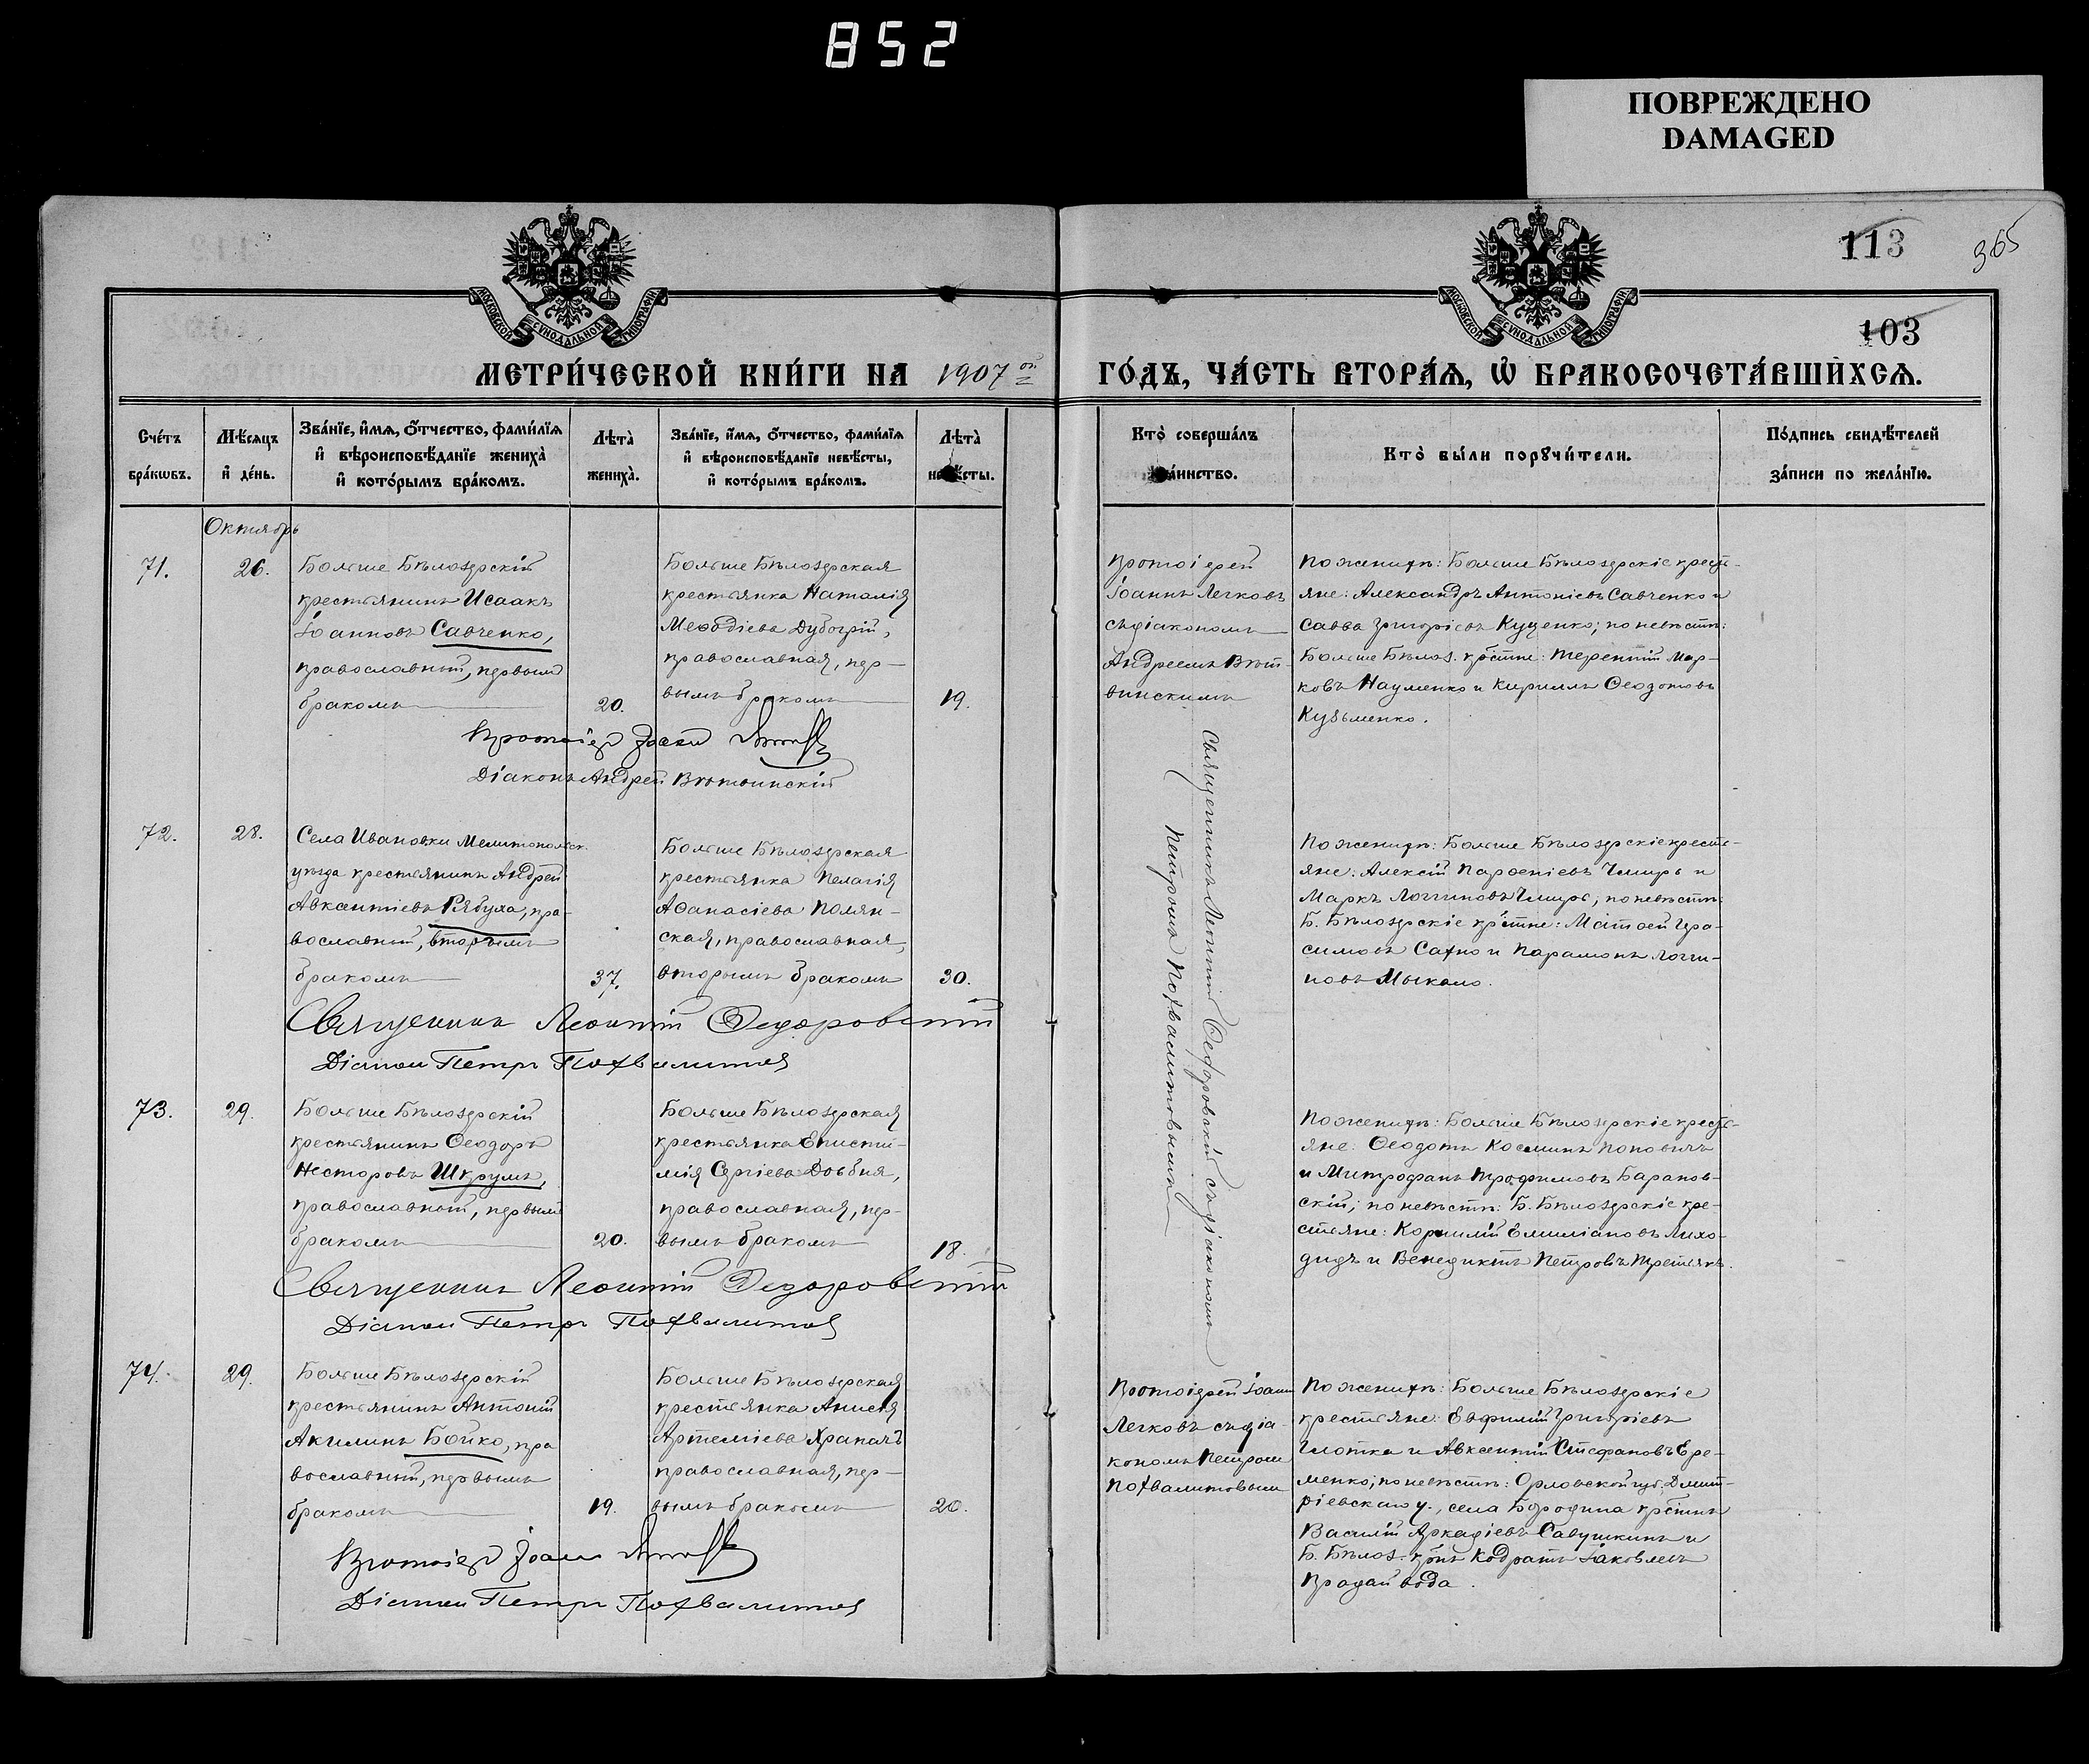 852
ПОВРЕЖДЕНО
DAMAGED
113
365
103
МОСКОВСКОЙ СУНОДАЛЬНОЙ ТИПОГРАФІИ
МОСКОВСКОЙ СУНОДАЛЬНОЙ ТИПОГРАФІИ
МЕТРИ́ЧЕСКОЙ КНИ́ГИ НА 1907 ой
ГО́ДЪ, ЧА́СТЬ ВТОРА́Ѧ, Ѡ҆ БРАКОСОЧЕТА́ВШИХСѦ.
Сче́тъ бра́кѡвъ.
Мѣ́сяцъ и҆ де́нь.
Зва́нїе, и҆́мѧ, о҆́тчество, фами́лїѧ
и҆ вѣроисповѣ́данїе жениха̀
и҆ кото́рымъ бра́комъ.
Лѣта̀ жениха̀.
Зва́нїе, и҆́мѧ, о҆́тчество, фами́лїѧ
и҆ вѣроисповѣ́данїе невѣ́сты,
и҆ кото́рымъ бра́комъ.
Лѣта̀ невѣ́сты.
Кто̀ соверша́лъ
таинство.
Кто̀ бы́ли порꙋчи́тели.
По́дпись свидѣ́телей
за́писи по жела́нїю.
Октябрь
71.
26.
Больше Бѣлозерскій
крестьянинъ Исаакъ
Іоанновъ Савченко,
православный, первымъ
бракомъ
20.
Больше Бѣлозерская
крестьянка Наталія
Меѳодіева Дубогрій,
православная, пер-
вымъ бракомъ
19.
Протоіерей
Іоаннъ Легковъ
съ діакономъ
Андреемъ Вют-
винскимъ
По женихѣ: Больше Бѣлозерскіе кресть-
яне: Александръ Антоніевъ Савченко и
Савва Григоріевъ Куценко; по невѣстѣ:
Больше Бѣлоз. крестне: Терентій Мар-
ковъ Науменко и Кириллъ Ѳеодотовъ
Кузьменко.
Протоіер Іоанн
Діаконъ Андрей Вютвинскій
72.
28.
Села Ивановки Мелитопольск.
уѣзда крестьянинъ Андрей
Авксентіевъ Рябуха, пра-
вославный, вторымъ
бракомъ
37.
Больше Бѣлозерская
крестьянка Пелагія
Аѳанасіева Полян-
ская, православная,
вторымъ бракомъ
30.
Священникъ Леонтій Ѳедоровскій съ діакономъ
Петромъ Похвалитовымъ
По женихѣ: Больше Бѣлозерскіе кресть-
яне: Алексій Парѳеніевъ Чмирь и
Маркъ Логгиновъ Чмирь; по невѣстѣ:
Б. Бѣлозерскіе крестне: Матѳей Гера-
симовъ Сахно и Парамонъ Логги-
новъ Мыкало.
Священникъ Леонтій Ѳедоровскій
Діакон Петръ Похвалитов
73.
29.
Больше Бѣлозерскій
крестьянинъ Ѳеодоръ
Несторовъ Шкрумъ,
православный, первымъ
бракомъ
20.
Больше Бѣлозерская
крестьянка Еписти-
мія Сергіева Довбня,
православная, пер-
вымъ бракомъ
18.
По женихѣ: Больше Бѣлозерскіе кресть-
яне: Ѳеодотъ Косминъ Поповичъ
и Митрофанъ Трофимовъ Баранов-
скій; по невѣстѣ: Б. Бѣлозерскіе кре-
стьяне: Корнилій Емиліановъ Лихо-
дидъ и Венедиктъ Петровъ Третьякъ.
Священникъ Леонтій Ѳедоровскій
Діакон Петръ Похвалитов
74.
29.
Больше Бѣлозерскій
крестьянинъ Антоній
Акилинъ Бойко, пра
вославный, первымъ
бракомъ
19.
Больше Бѣлозерская
крестьянка Анисія
Артеміева Храпачъ
православная, пер-
вымъ бракомъ
20.
Протоіерей Іоанн
Легковъ съ діа-
кономъ Петромъ
Похвалитовымъ
По женихѣ: Больше Бѣлозерскіе
крестьяне: Евфимій Григоріевъ
Глотка и Авксентій Стефановъ Ере-
менко; по невѣстѣ: Орловской губ., Дмит-
ріевскаго у., села Бородина крестнъ
Василій Аркадіевъ Савушкинъ и
Б. Бѣлоз. крнъ Кодратъ Іаковлевъ
Продайвода.
Протоіер Іоанн
Діакон Петръ Похвалитов